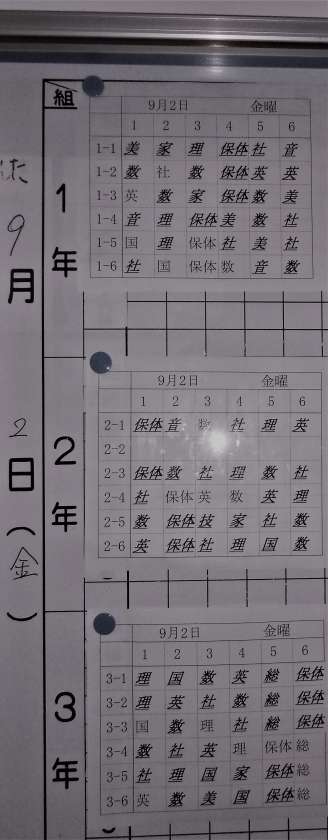 9月2日(金)
組
1年
9月2日 金曜
1 2 3 4 5 6
1-1 美 家 理 保体 社 音
1-2 数 社 数 保体 英 英
1-3 英 数 家 保体 数 美
1-4 音 理 保体 美 数 社
1-5 国 理 保体 社 美 社
1-6 社 国 保体 数 音 数
2年
9月2日 金曜
1 2 3 4 5 6
2-1 保体 音 数 社 理 英
2-2
2-3 保体 数 社 理 数 社
2-4 社 保体 英 数 英 理
2-5 数 保体 技 家 社 数
2-6 英 保体 社 理 国 数
3年
9月2日 金曜
1 2 3 4 5 6
3-1 理 国 数 英 総 保体
3-2 理 英 社 数 総 保体
3-3 国 数 理 社 総 保体
3-4 数 社 英 理 保体 総
3-5 社 理 国 家 保体 総
3-6 英 数 美 国 保体 総